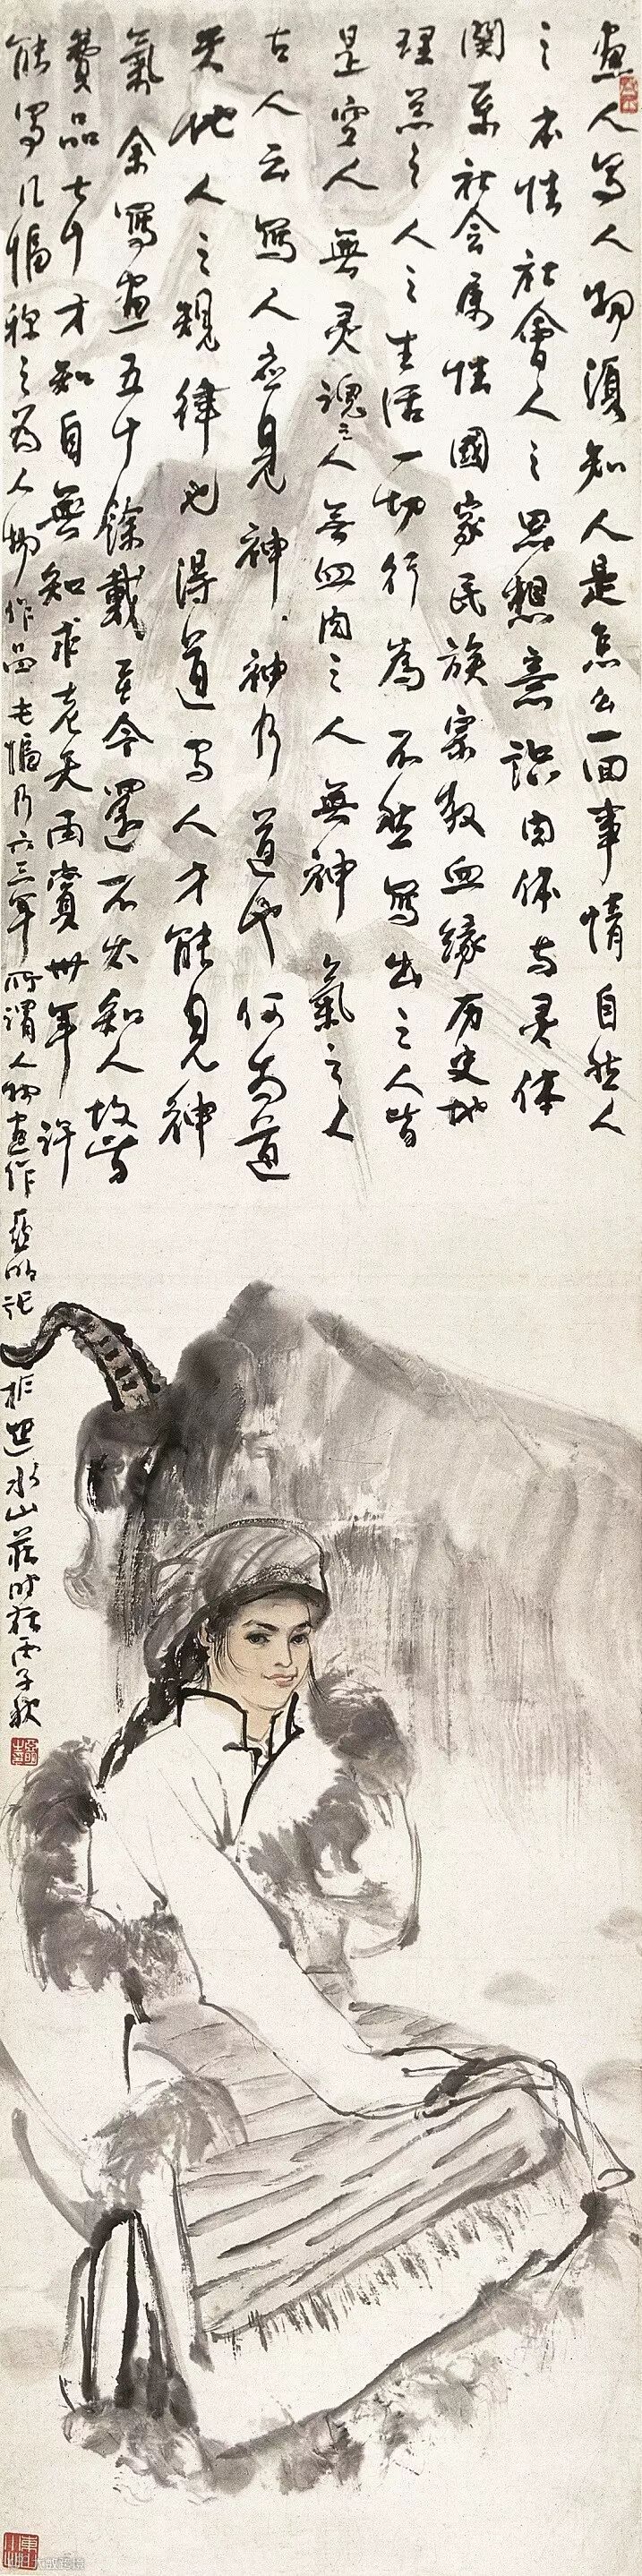 画人写人物须知人是怎么一回事情自然人
之本性社會人之思想意识肉体与灵体
関系社会属性國家民族宗教血缘历史地
理总之人之生活一切行為不然写出之人皆
是空人無灵魂之人無血肉之人無神氣之人
古人云写人应見神神乃道也何为道
天地人之規律也得道写人才能見神
氣余写畫五十餘載至今還不太知人故皆
費品七十才知自無知求老天再賞卅年许
能写几幅称之为人物作品也幅乃六三年所谓人物画作亚明记
於近水山莊时在丙子秋